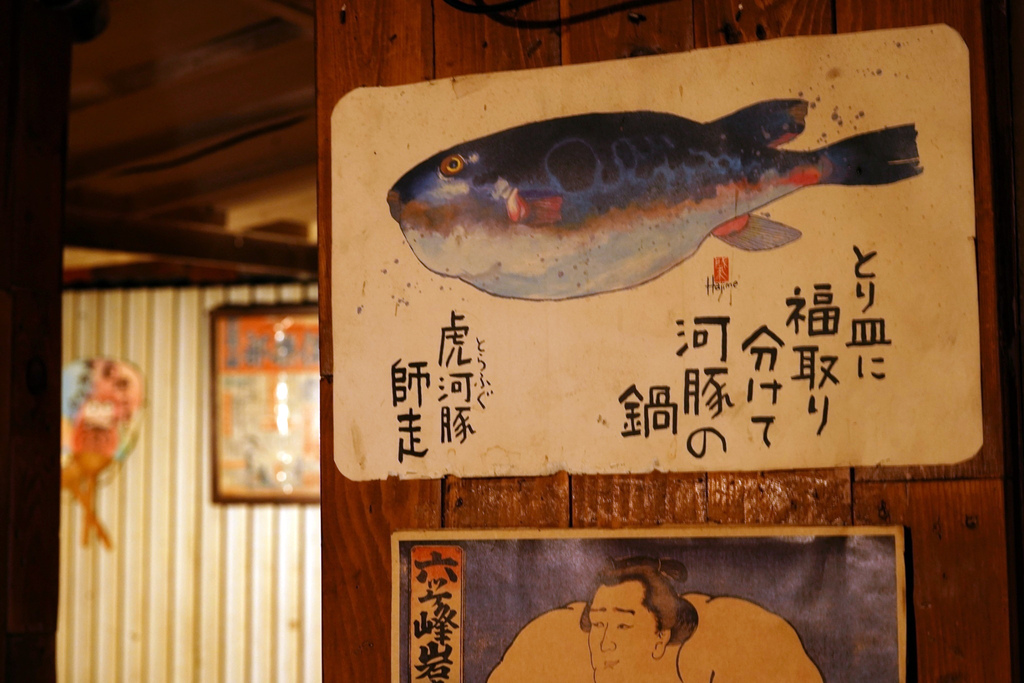 とり皿に
福取り
分けて
河豚の
鍋
Hajime
虎河豚
とらふぐ
師走
六ヶ峰岩